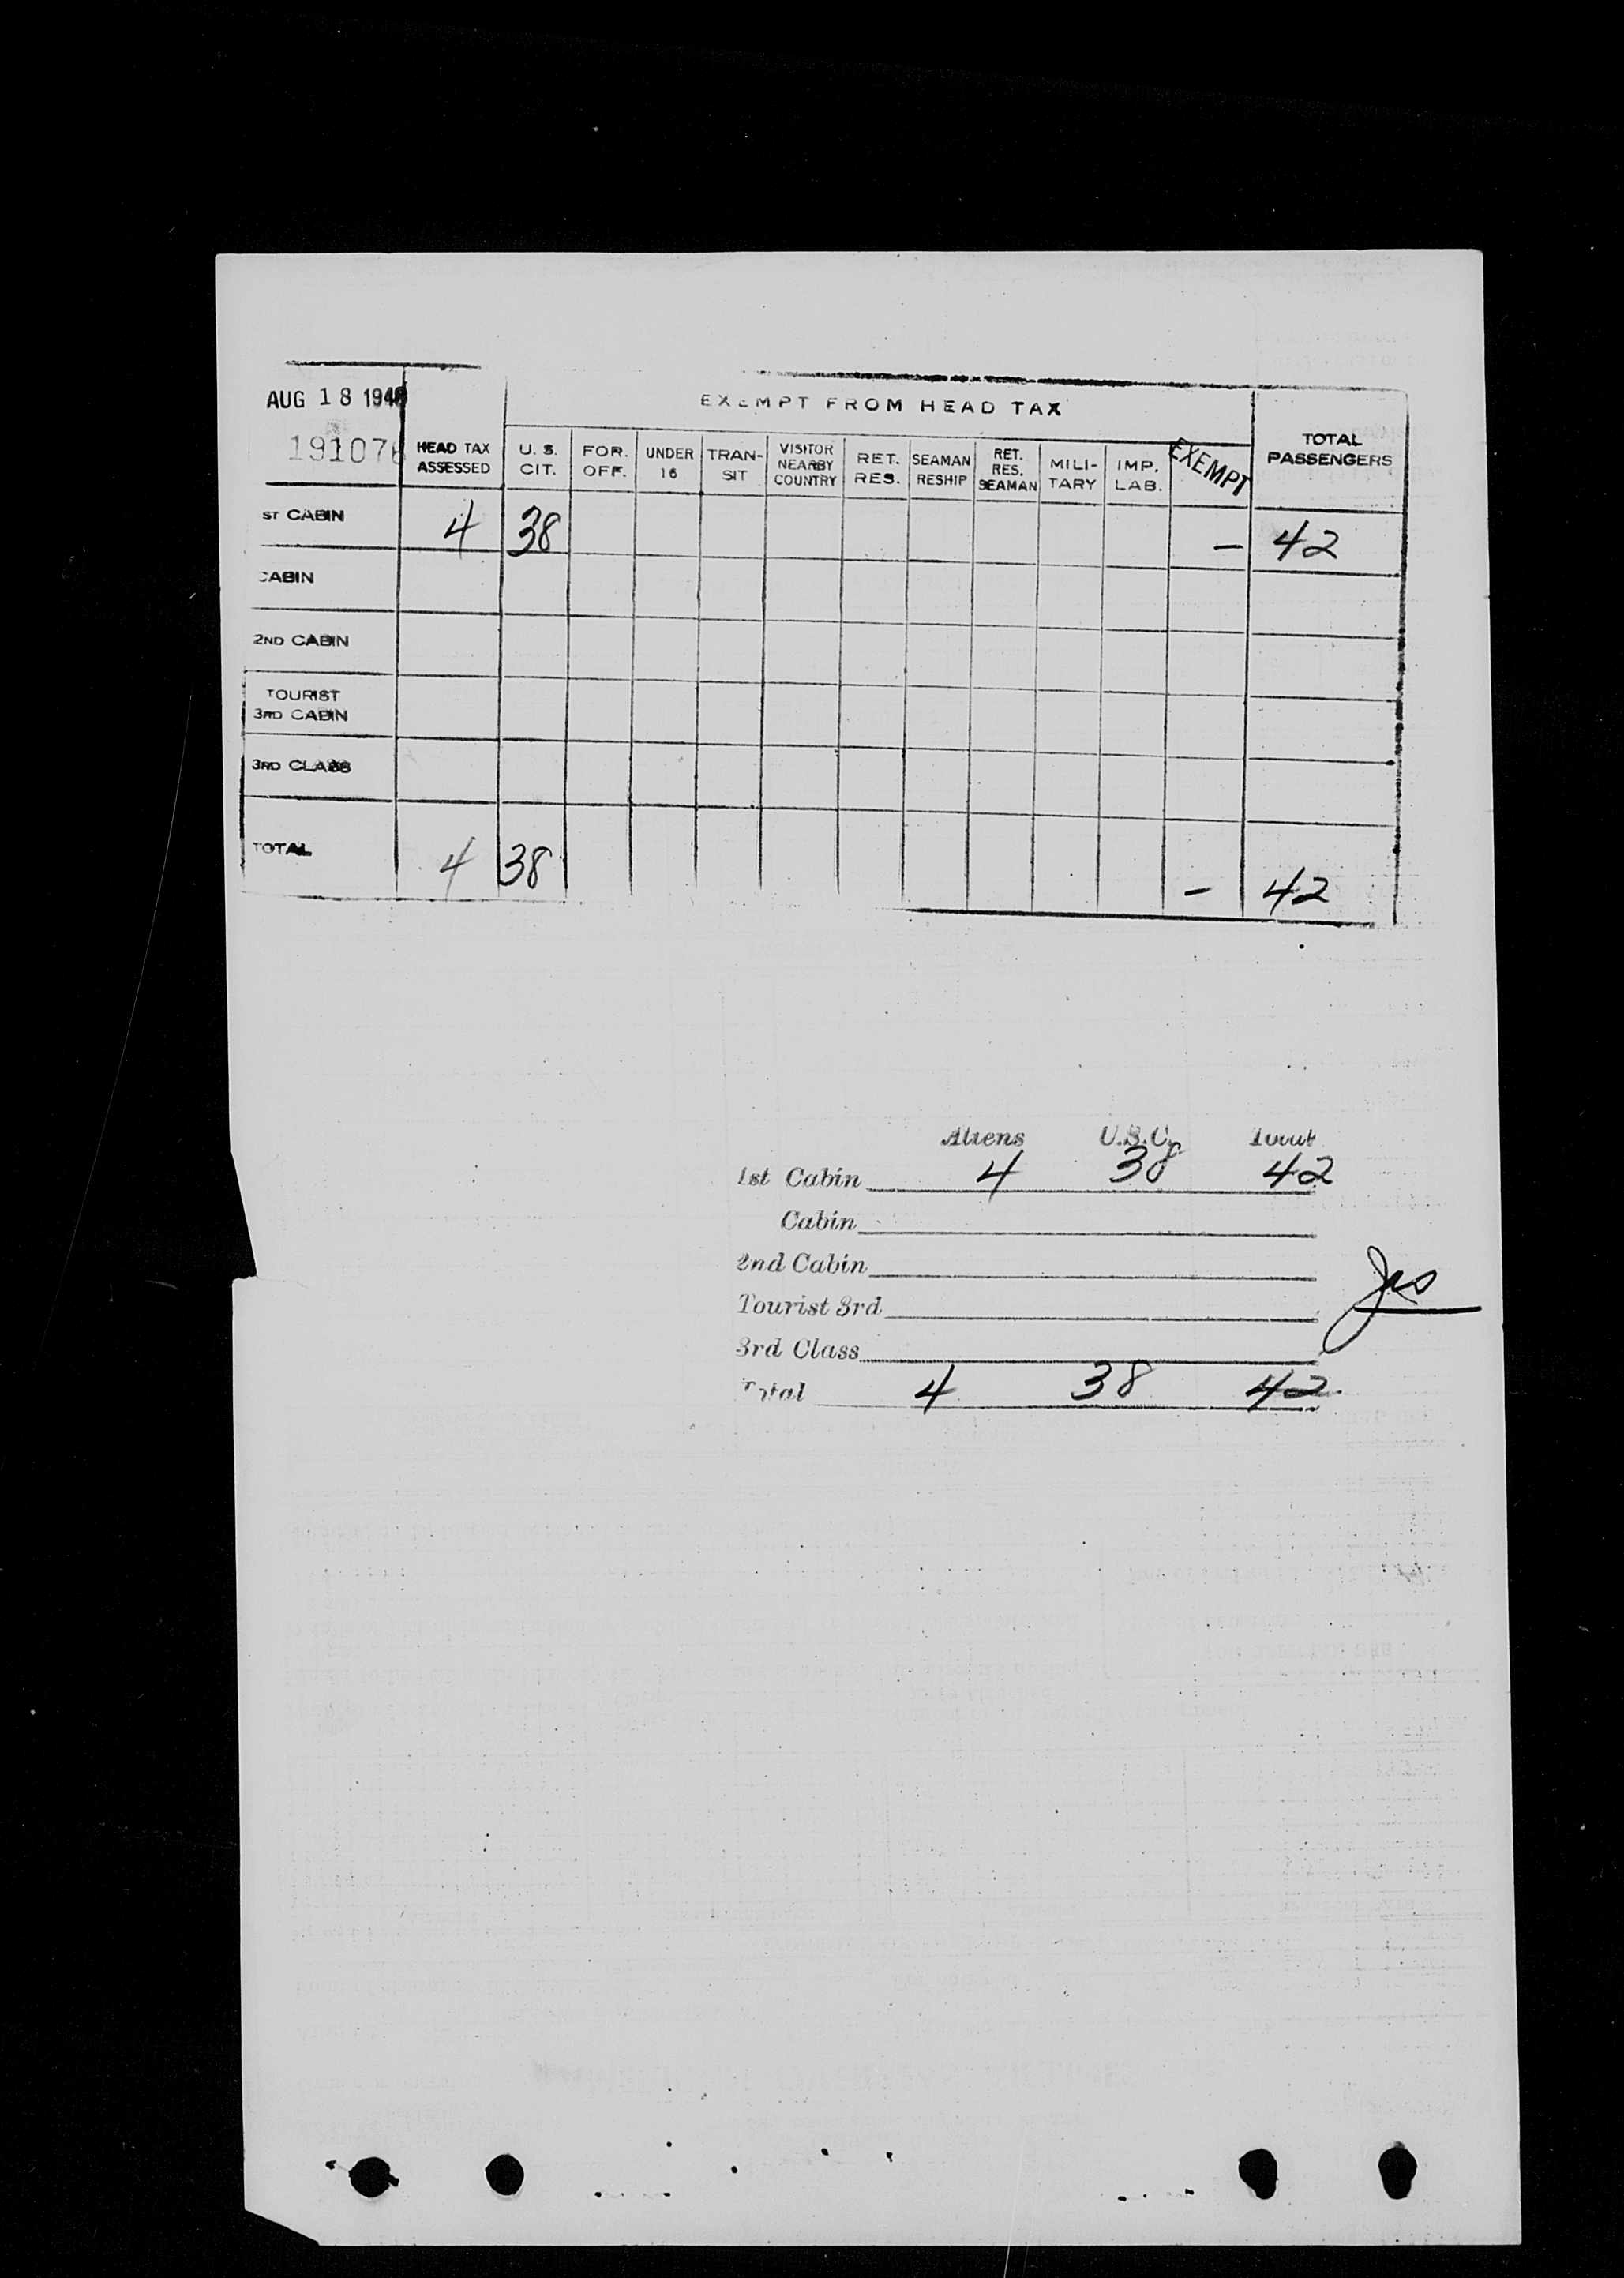 AUG 18 194
EXEMPT FROM HEAD TAX
19107
HEAD TAX ASSESSED
U. S. CIT.
FOR. OFF.
UNDER 16
TRAN-SIT
VISITOR NEARBY COUNTRY
RET. RES.
SEAMAN RESHIP
RET. RES. SEAMAN
MILI-TARY
IMP. LAB.
EXEMPT
TOTAL PASSENGERS
ST CABIN 4 38 — 42
CABIN
2ND CABIN
TOURIST
3RD CABIN
3RD CLASS
TOTAL 4 38 — 42
Aliens U.S.C. Total
1st Cabin 4 38 42
Cabin
2nd Cabin
Tourist 3rd
3rd Class
Total 4 38 42